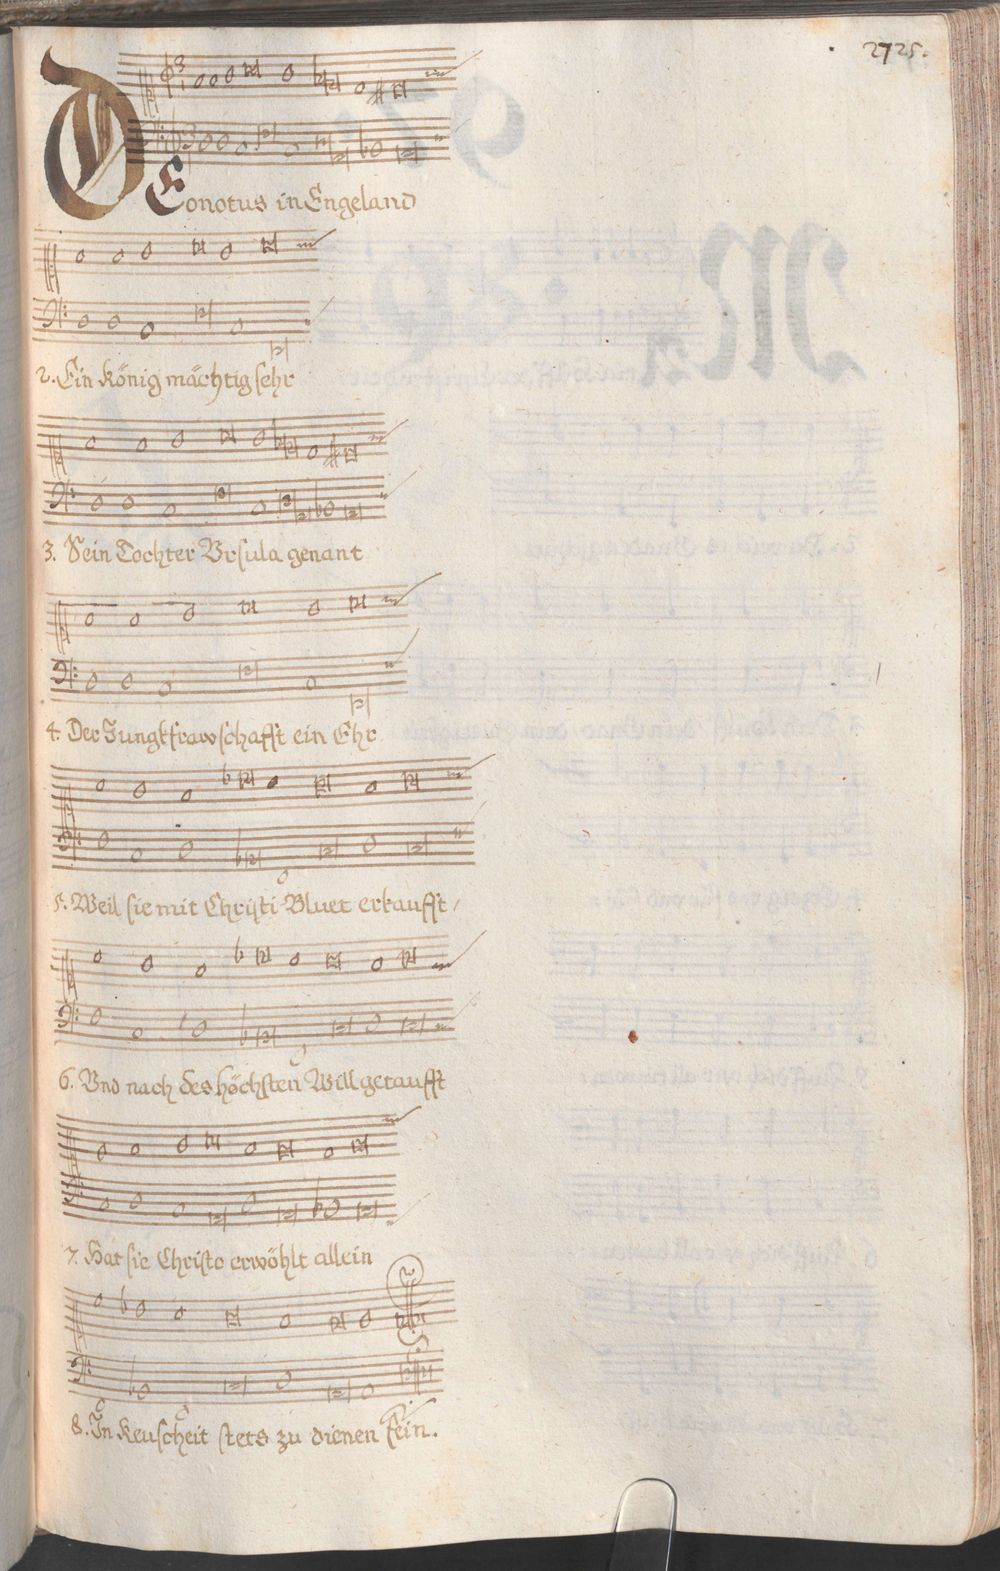 2725.
DEonotus in Engeland
2. Ein König mächtig sehr
3. Sein Tochter Vrsula genant
4. Der Jungkfraw schafft ein Ehr
5. Weil sie mit Christi Bluet erkaufft
6. Vnd nach des höchsten Will getaufft
7. Hat sie Christo erwöhlt allein
8. In Keuscheit stets zu dienen sein.